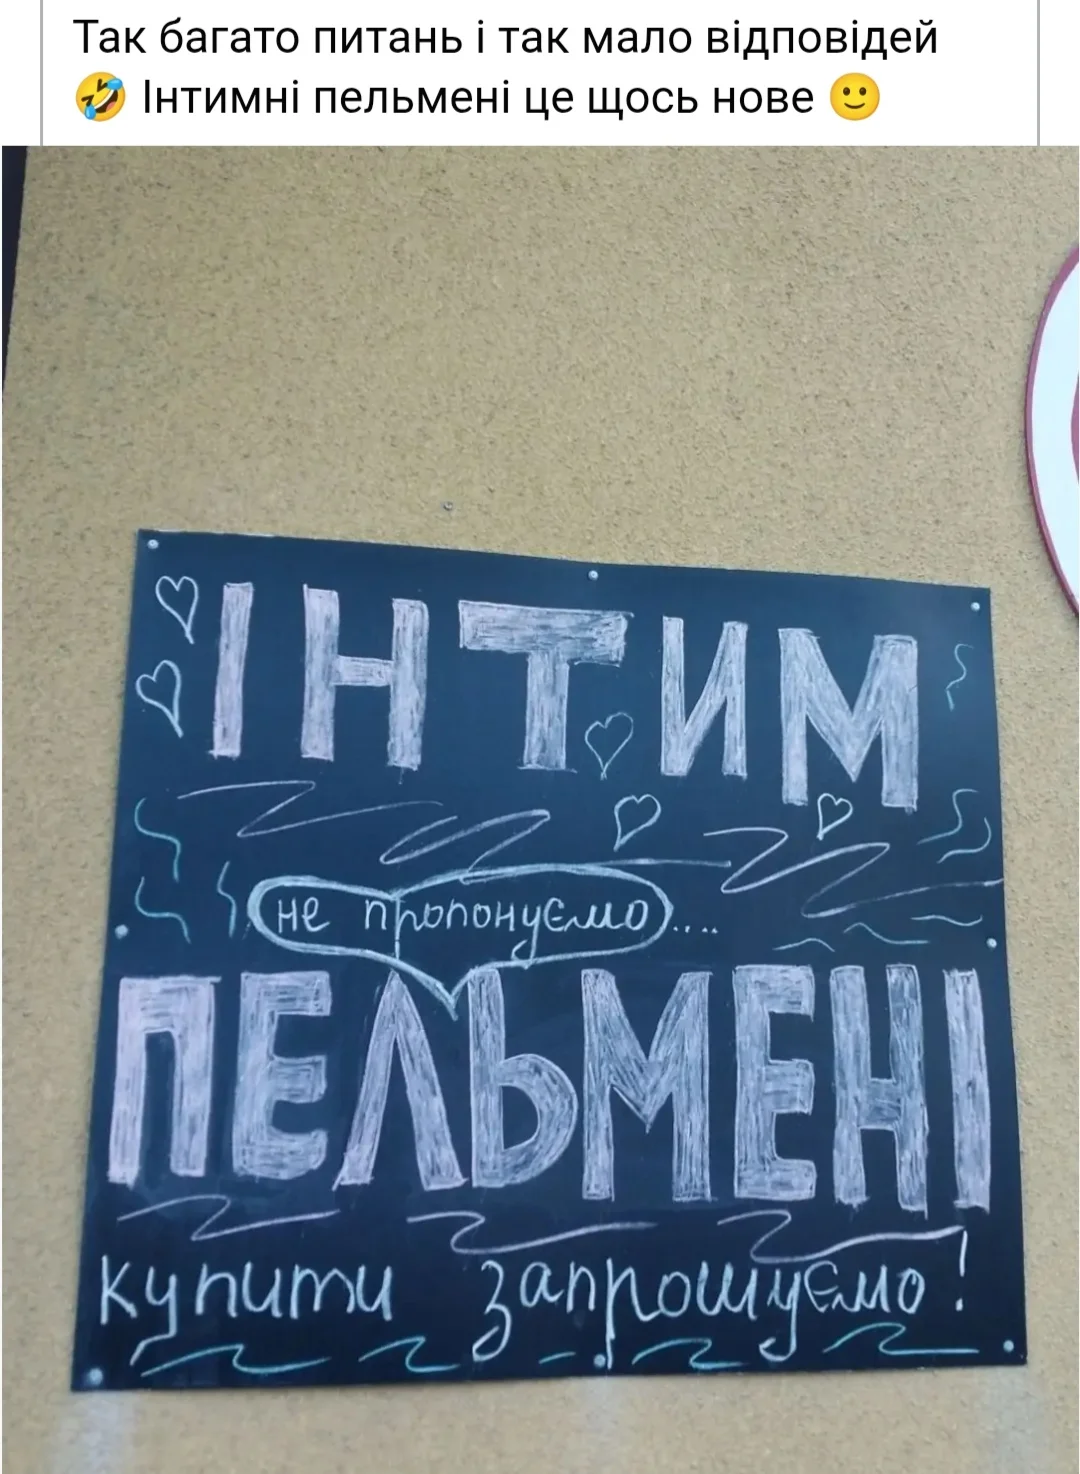 Так багато питань і так мало відповідей
🤣 Інтимні пельмені це щось нове 🙂
ІНТИМ
не пропонуємо....
ПЕЛЬМЕНІ
купити запрошуємо!